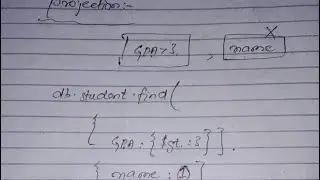 projection:-
X
GPA>3 , name
db.student.find(
{
GPA : {$gt : 3}}.
{ name : 1}